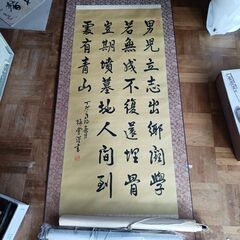 男兒立志出鄉關學
若無成不復還埋骨
豈期墳墓地人間到
處有青山